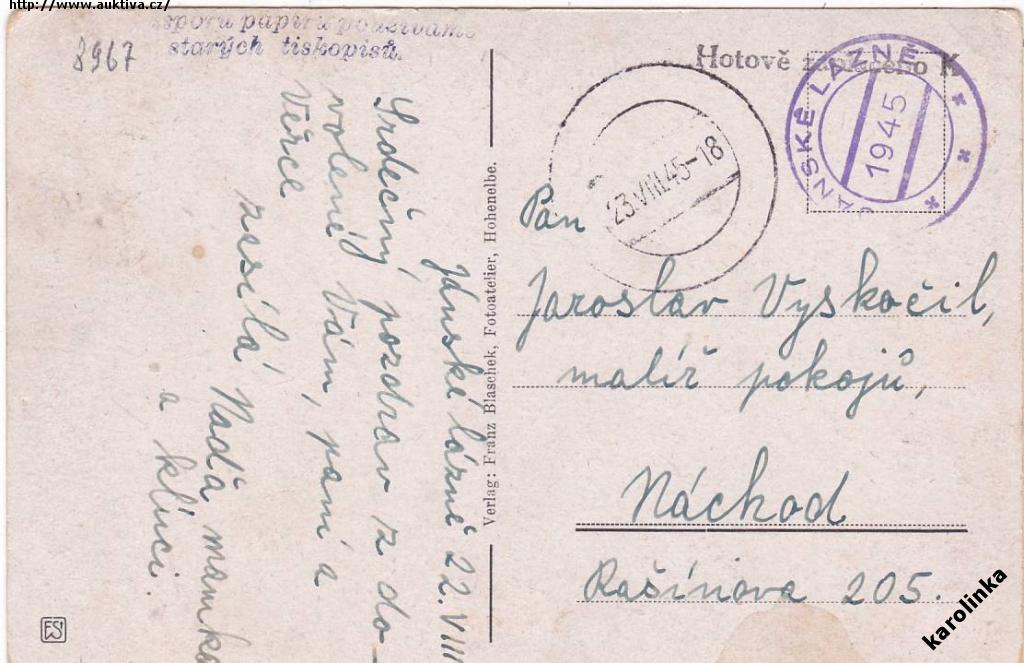 http://www.auktiva.cz/
8967
úsporu papíru používáme
starých tiskopisů.
Jánské lázně 22. VIII
Srdečný pozdrav z do-
volené Vám, paní a
Věrce
zasílá Naďa, mamka
a kluci.
Verlag: Franz Blaschek, Fotoatelier, Hohenelbe.
Hotově zaplaceno K
23.VIII.45-18
JÁNSKÉ LÁZNĚ
1945
Pán
Jaroslav Vyskočil,
malíř pokojů,
Náchod
Rašínova 205.
karolinka